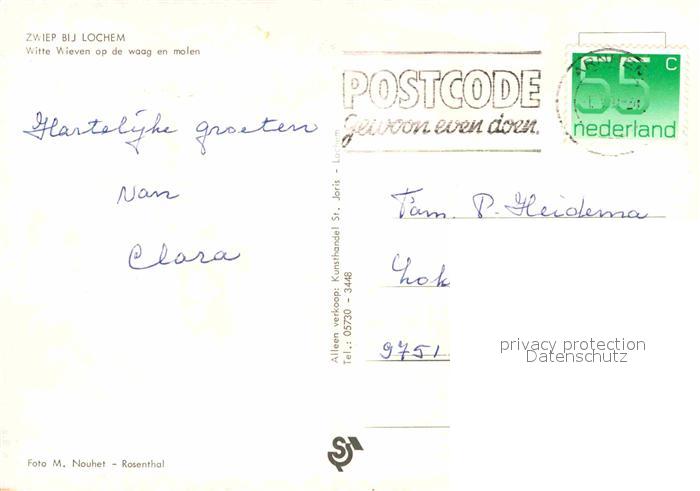 ZWIEP BIJ LOCHEM
Witte Wieven op de waag en molen
Hartelijke groeten
van
Clara
Foto M. Nouhet - Rosenthal
Alleen verkoop: Kunsthandel St. Joris - Lochem
Tel.: 05730 - 3448
POSTCODE
gewoon even doen.
55 c
nederland
Fam. P. Heidema
Lok
9751
privacy protection
Datenschutz